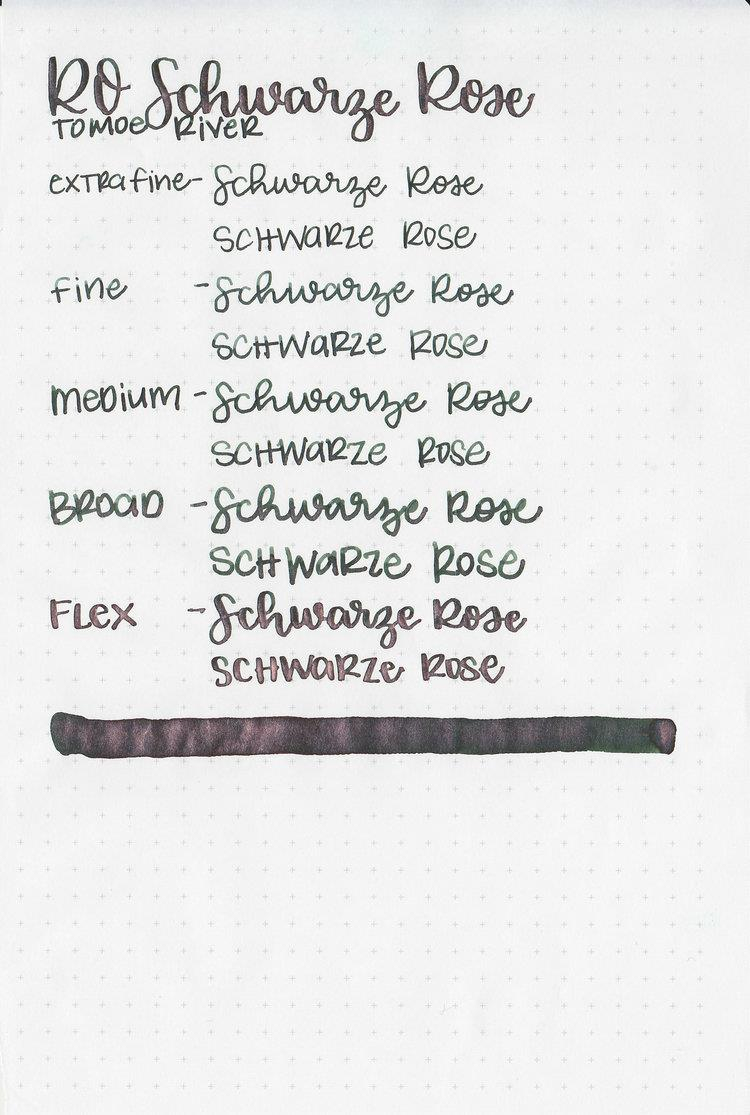 RO Schwarze Rose
TOMOE RIVER
exTRafine - Schwarze Rose
SCHWaRZe ROSe
fine - Schwarze Rose
SCHWaRZe ROSe
meDium - Schwarze Rose
SCHWaRZe ROSe
BROaD - Schwarze Rose
SCHWaRZe ROSe
FLex - Schwarze Rose
SCHWaRZe ROSe